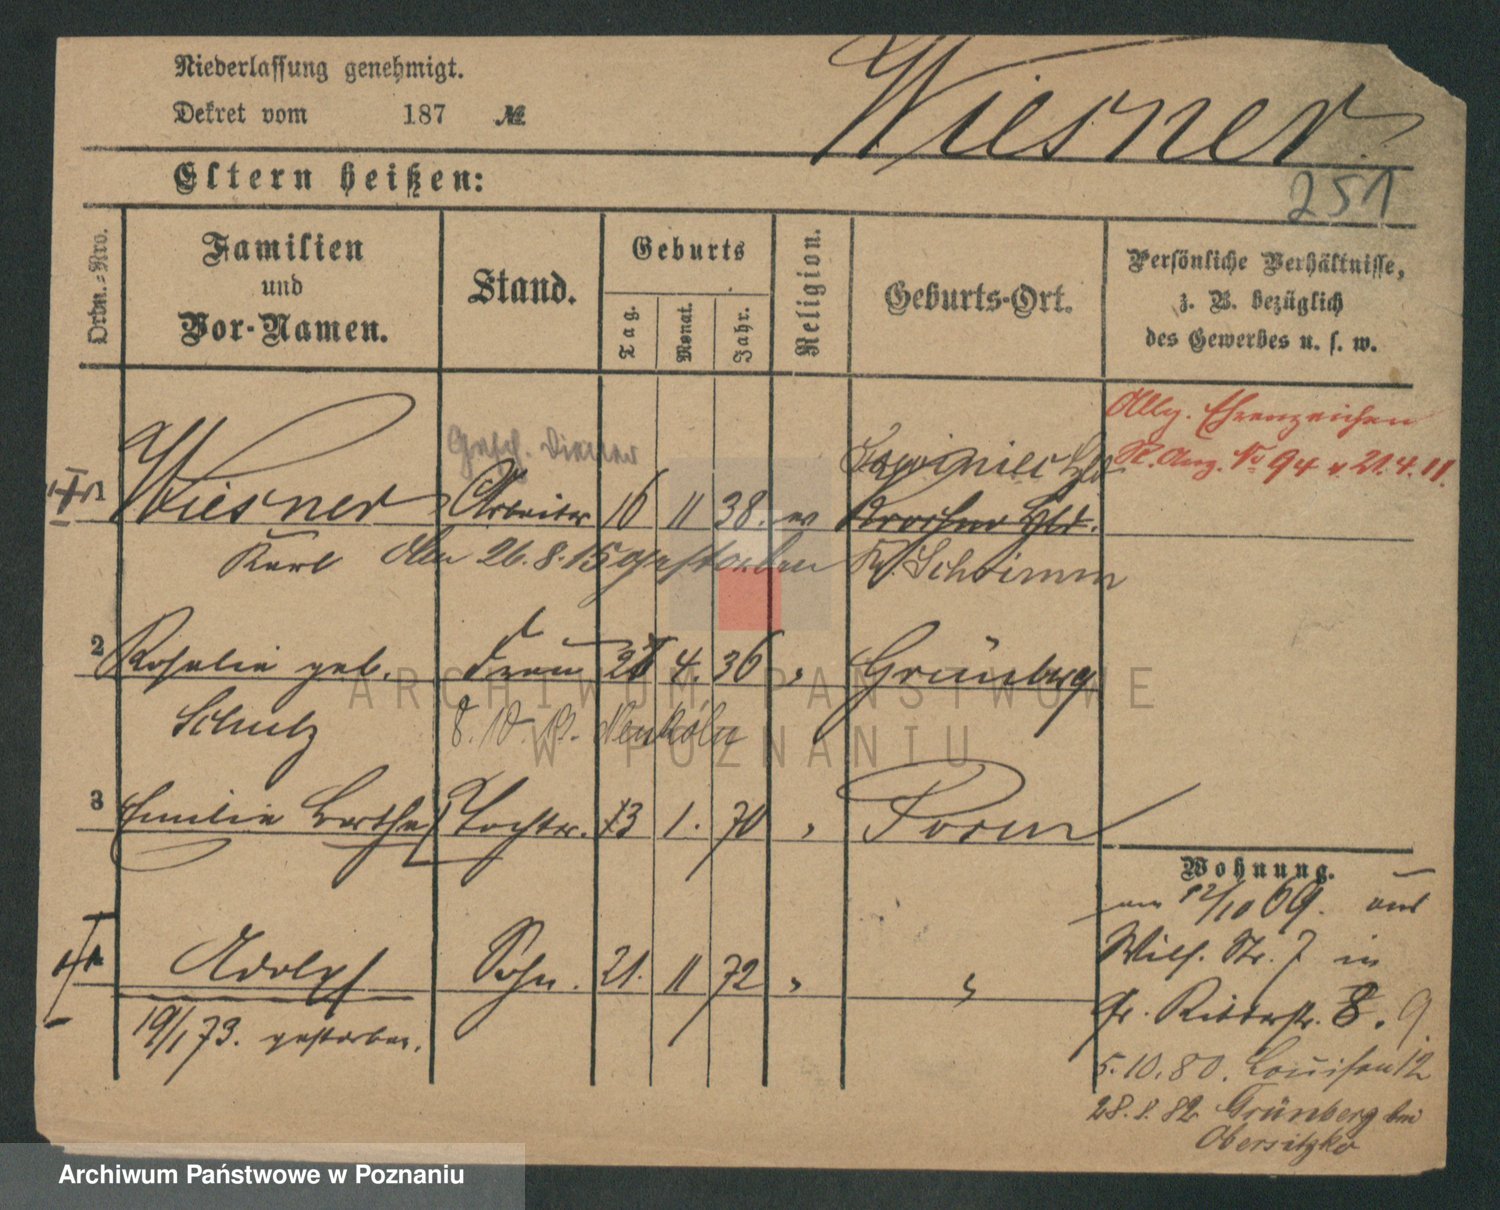 Niederlassung genehmigt.
Dekret vom 187 №
Wiesner
Eltern heißen:
251
Ordn.-Nro.
Familien
und
Vor-Namen.
Stand.
Geburts
Tag.
Monat.
Jahr.
Religion.
Geburts-Ort.
Persönliche Verhältnisse,
z. B. bezüglich
des Gewerbes u. s. w.
Allg. Ehrenzeichen
R. Anz. No 94 v 21.4.11.
Gesch. Diener
Wiesner Arbeiter 16 11 38. ev
Karl den 26.8.15 gestorben Kr. Schrimm
2 Rosalie geb. Frau 4. 36 " Grünberg
Schulz Neukölln
3 Emilie Bertha Tochter. 13 1. 70 " Posen
Wohnung.
am 12/10 69. aus
Wilh. Str. 7 in
Gr. Ritterstr. 8. 9.
5.10.80. Louisen 12
28.8.82 Grünberg bei
Obersitzko
Adolph Sohn. 21. 11 72 " "
19/1 73. gestorben.
ARCHIWUM PAŃSTWOWE
W POZNANIU
Archiwum Państwowe w Poznaniu